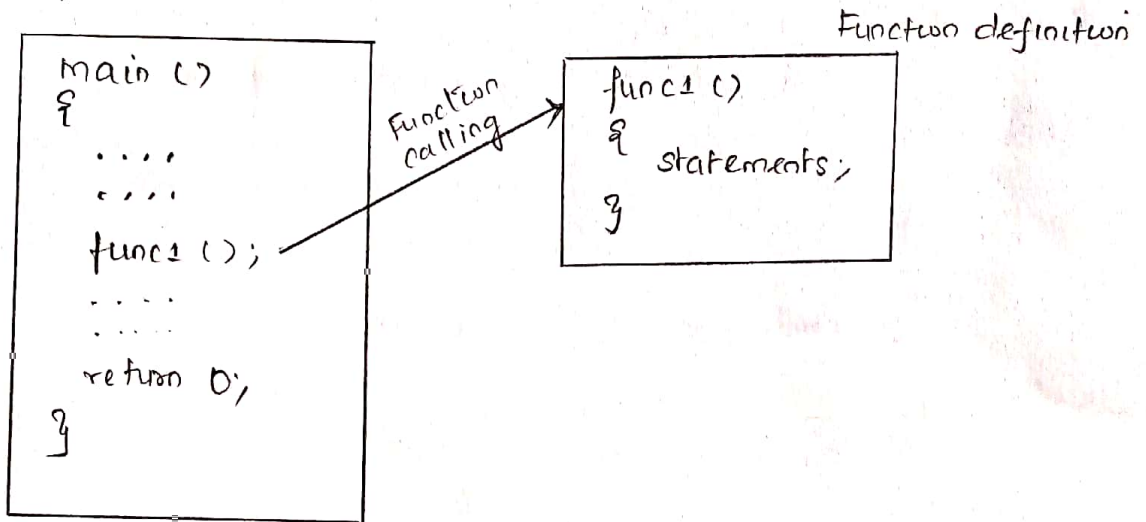 Function definition
main ()
{
....
....
func1 ();
....
.....
return 0;
}
Function
calling
func1 ()
{
statements;
}